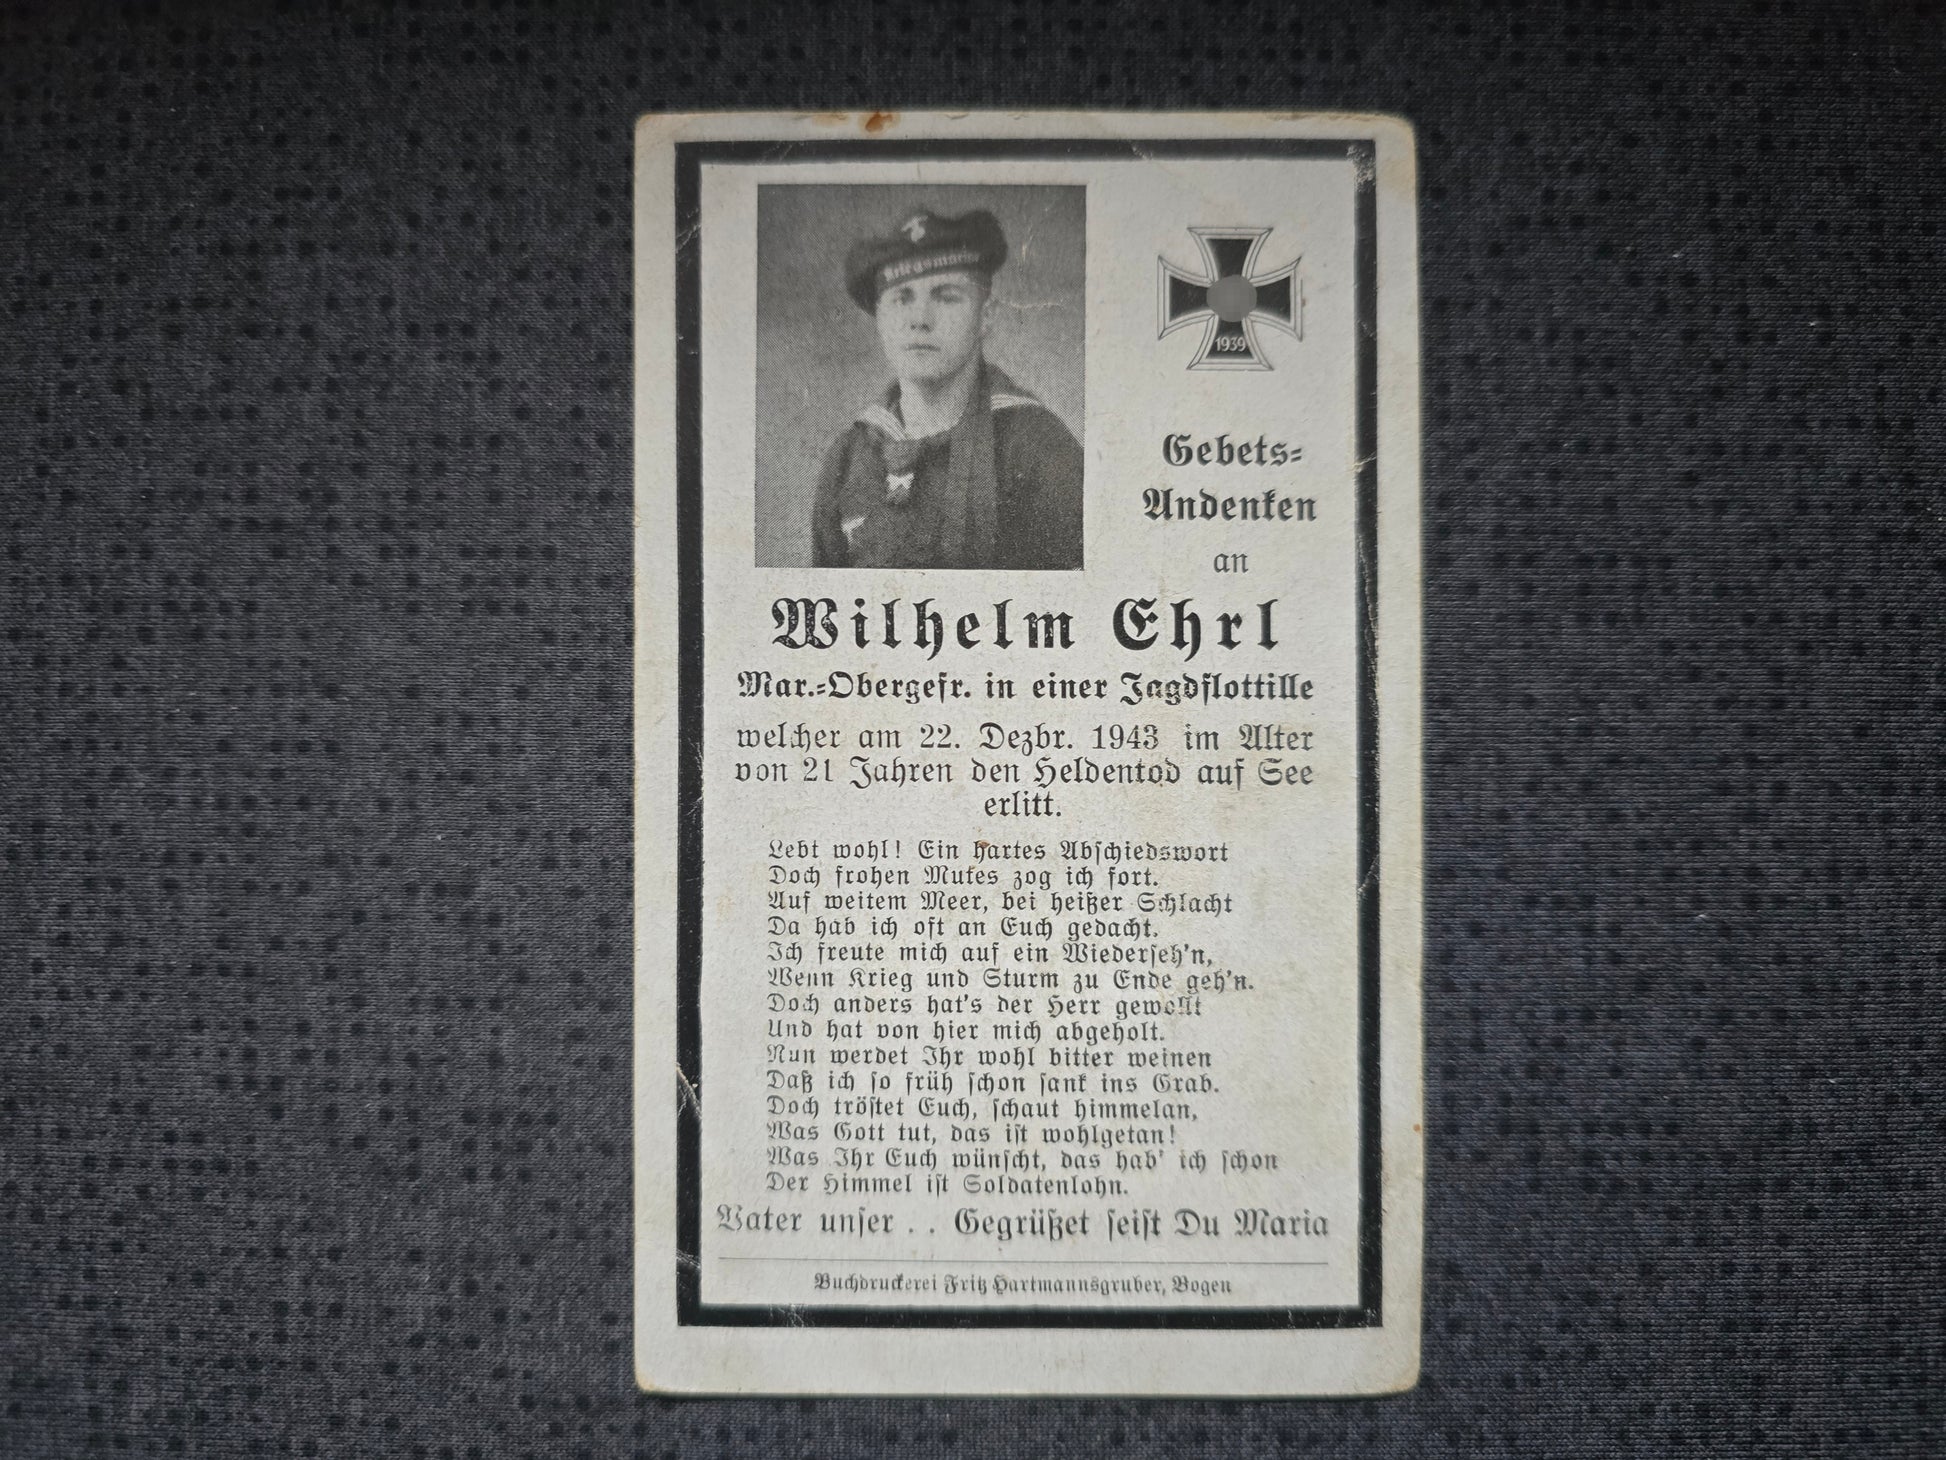 Kriegsmarine
1939
Gebets-
Andenken
an
Wilhelm Ehrl
Mar.-Obergefr. in einer Jagdflottille
welcher am 22. Dezbr. 1943 im Alter
von 21 Jahren den Heldentod auf See
erlitt.
Lebt wohl! Ein hartes Abschiedswort
Doch frohen Mutes zog ich fort.
Auf weitem Meer, bei heißer Schlacht
Da hab ich oft an Euch gedacht.
Ich freute mich auf ein Wiederseh'n,
Wenn Krieg und Sturm zu Ende geh'n.
Doch anders hat's der Herr gewollt
Und hat von hier mich abgeholt.
Nun werdet Ihr wohl bitter weinen
Daß ich so früh schon sank ins Grab.
Doch tröstet Euch, schaut himmelan,
Was Gott tut, das ist wohlgetan!
Was Ihr Euch wünscht, das hab' ich schon
Der Himmel ist Soldatenlohn.
Vater unser . . Gegrüßet seist Du Maria
Buchdruckerei Fritz Hartmannsgruber, Bogen